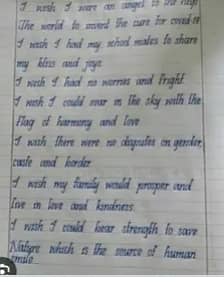 I wish I were an angel to the help
The world to invent the cure for covid-19
I wish I had my school mates to share
my bliss and joys
I wish I had no worries and fright
I wish I could soar in the sky with the
Flag of harmony and love
I wish there were no disputes on gender,
caste and border
I wish my family would prosper and
live in love and kindness.
I wish I could bear strength to save
Nature which is the source of human
smile